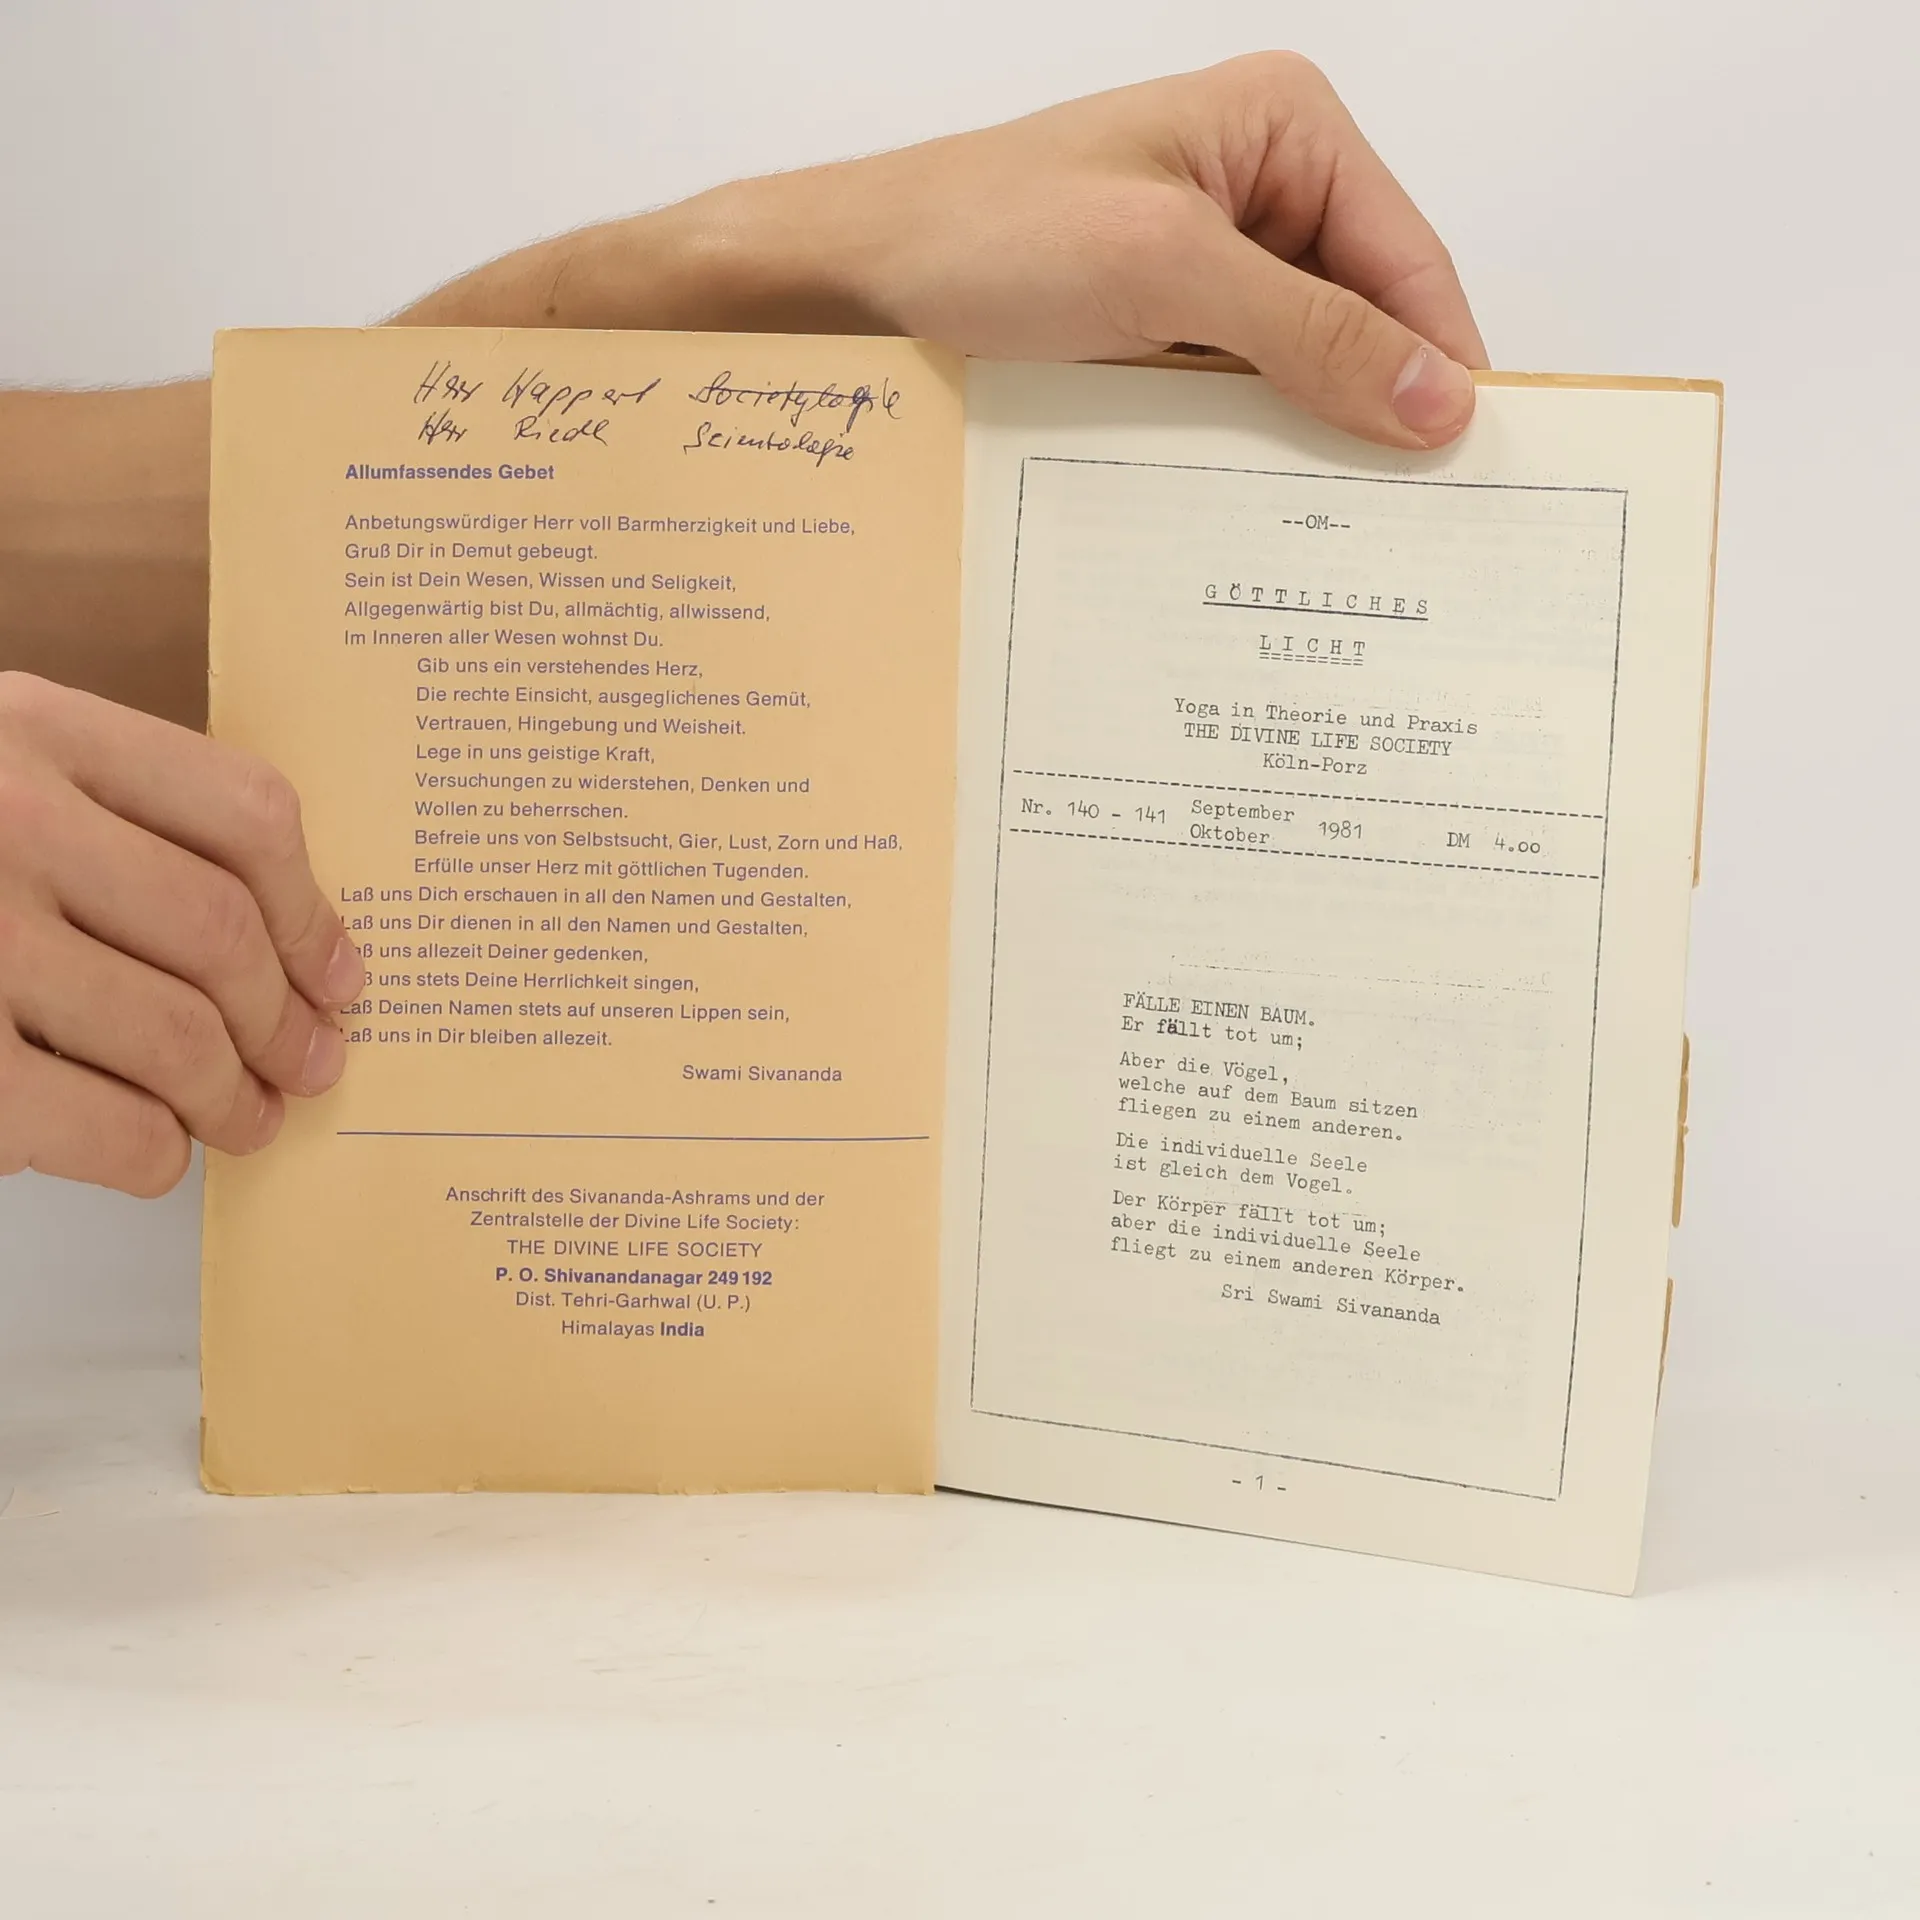 Herr Happert Societylogie
Herr Riedl Scientologie
Allumfassendes Gebet
Anbetungswürdiger Herr voll Barmherzigkeit und Liebe,
Gruß Dir in Demut gebeugt.
Sein ist Dein Wesen, Wissen und Seligkeit,
Allgegenwärtig bist Du, allmächtig, allwissend,
Im Inneren aller Wesen wohnst Du.
Gib uns ein verstehendes Herz,
Die rechte Einsicht, ausgeglichenes Gemüt,
Vertrauen, Hingebung und Weisheit.
Lege in uns geistige Kraft,
Versuchungen zu widerstehen, Denken und
Wollen zu beherrschen.
Befreie uns von Selbstsucht, Gier, Lust, Zorn und Haß,
Erfülle unser Herz mit göttlichen Tugenden.
Laß uns Dich erschauen in all den Namen und Gestalten,
Laß uns Dir dienen in all den Namen und Gestalten,
aß uns allezeit Deiner gedenken,
ß uns stets Deine Herrlichkeit singen,
Laß Deinen Namen stets auf unseren Lippen sein,
Laß uns in Dir bleiben allezeit.
Swami Sivananda
Anschrift des Sivananda-Ashrams und der
Zentralstelle der Divine Life Society:
THE DIVINE LIFE SOCIETY
P. O. Shivanandanagar 249192
Dist. Tehri-Garhwal (U. P.)
Himalayas India
--OM--
GÖTTLICHES
LICHT
Yoga in Theorie und Praxis
THE DIVINE LIFE SOCIETY
Köln-Porz
Nr. 140 - 141 September Oktober 1981 DM 4.00
FÄLLE EINEN BAUM.
Er fällt tot um;
Aber die Vögel,
welche auf dem Baum sitzen
fliegen zu einem anderen.
Die individuelle Seele
ist gleich dem Vogel.
Der Körper fällt tot um;
aber die individuelle Seele
fliegt zu einem anderen Körper.
Sri Swami Sivananda
- 1 -